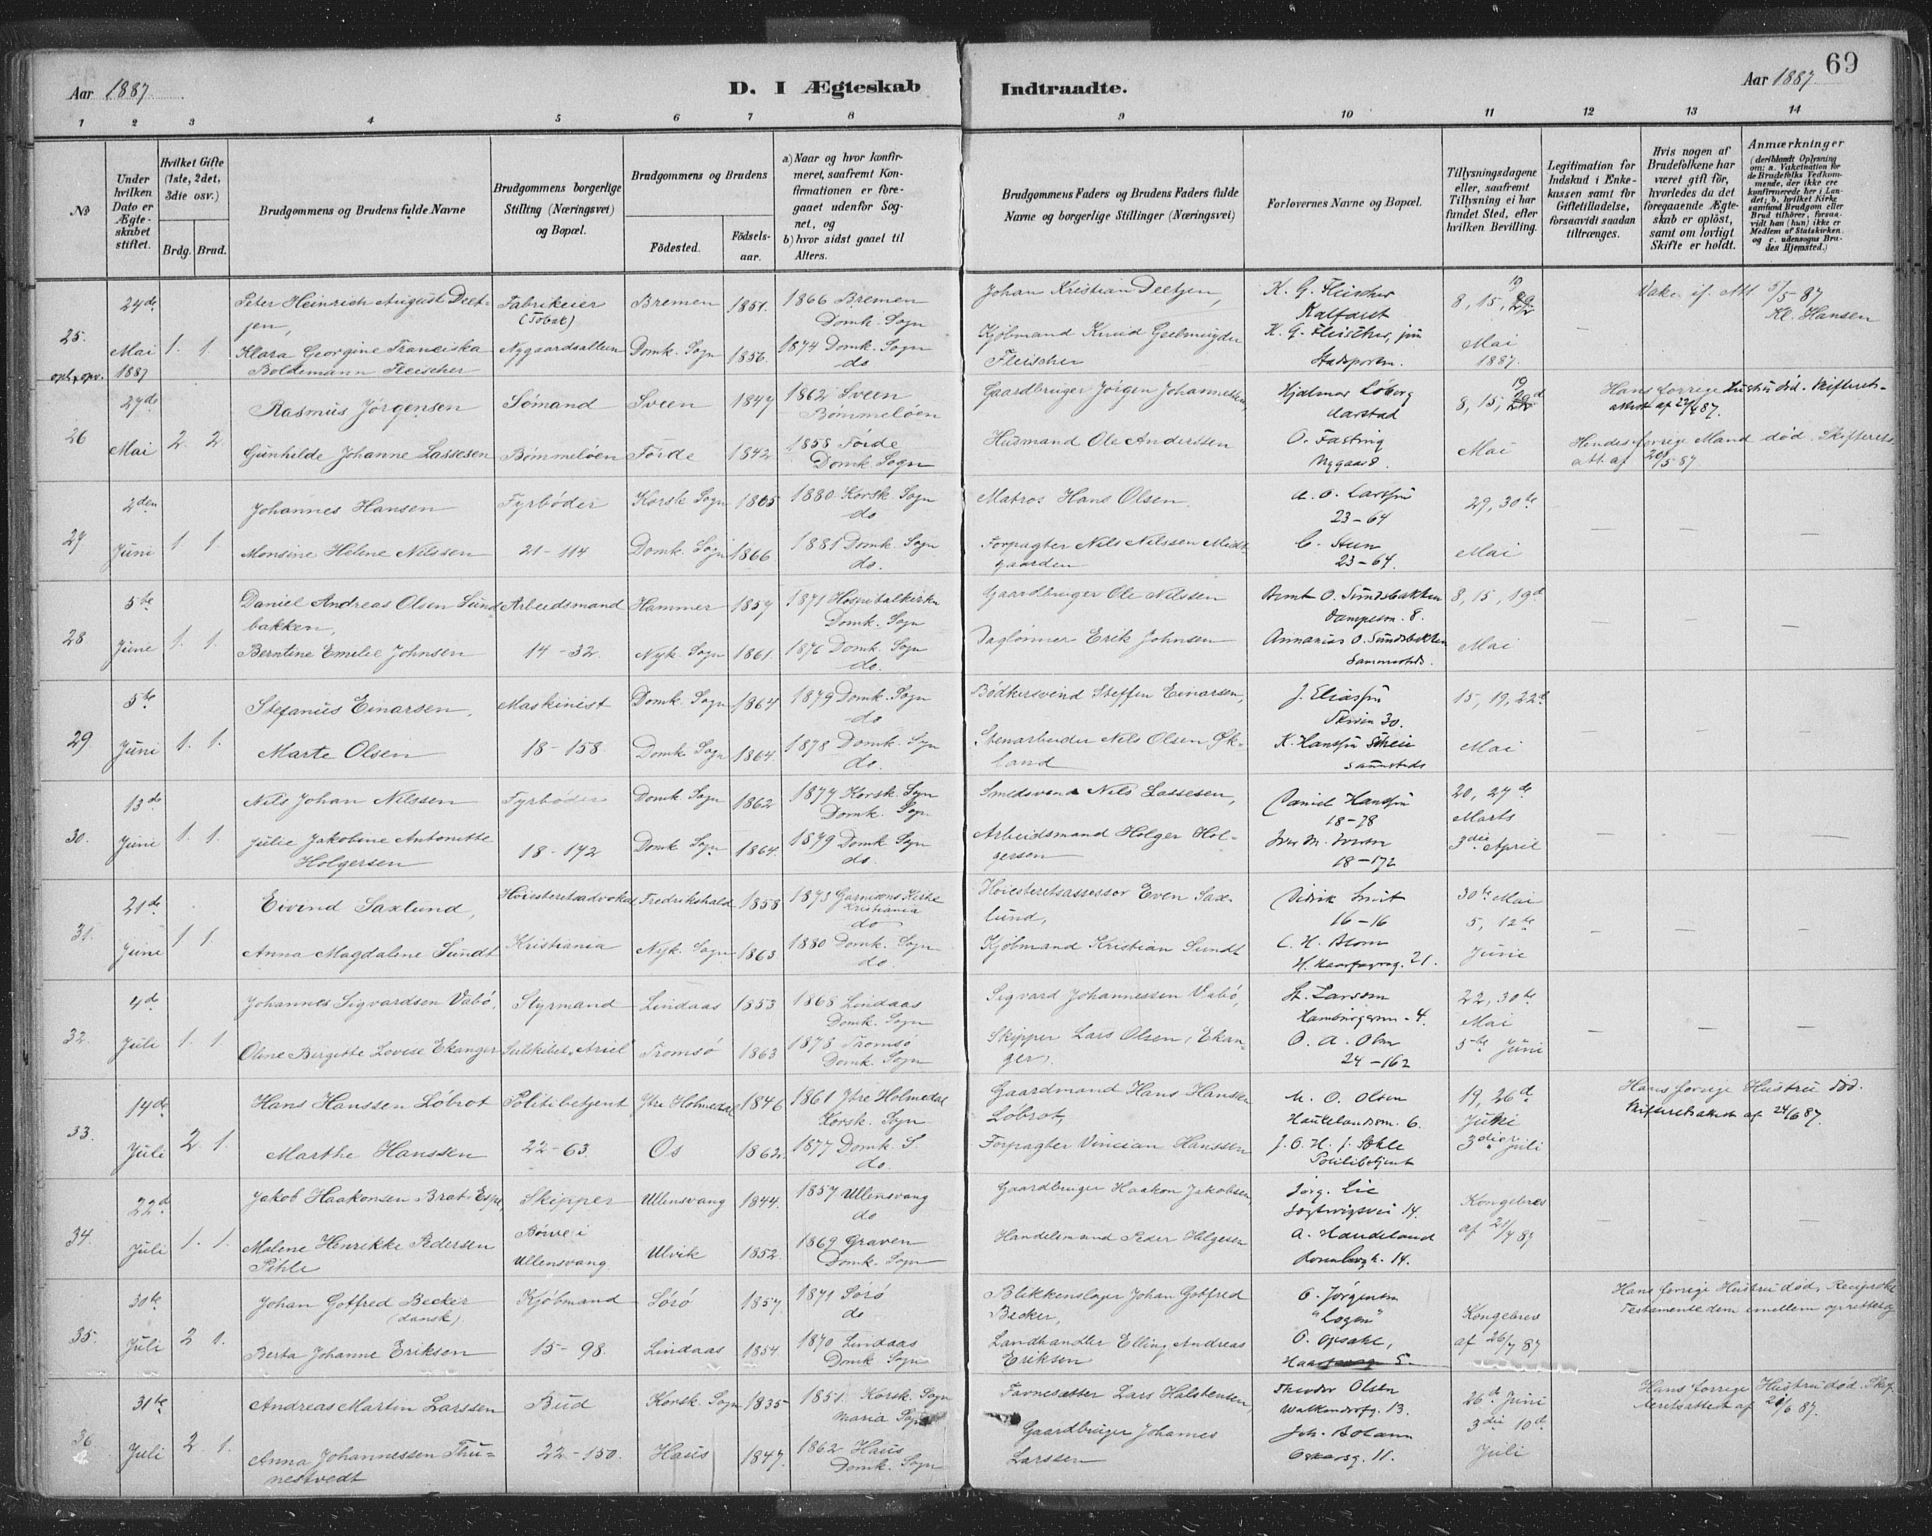 69
Aar 1887.
D. I Ægteskab
Indtraadte.
Aar 1887
1 2 3 4 5 6 7 8 9 10 11 12 13 14
No
Under hvilken Dato er Ægteskabet stiftet.
Hvilket Gifte (1ste, 2det, 3die osv.)
Brdg. Brud.
Brudgommens og Brudens fulde Navne
Brudgommens borgerlige Stilling (Næringsvei) og Bopæl.
Brudgommens og Brudens
Födested.
Födselsaar.
a) Naar og hvor konfirmeret, saafremt Konfirmationen er foregaaet udenfor Sognet, og
b) hvor sidst gaaet til Alters.
Brudgommens Faders og Brudens Faders fulde Navne og borgerlige Stillinger (Næringsvei)
Forlovernes Navne og Bopæl.
Tillysningsdagene eller, saafremt Tillysning ei har fundet Sted, efter hvilken Bevilling.
Legitimation for Indskud i Enkekassen samt for Giftetilladelse, forsaavidt saadan tiltrænges.
Hvis nogen af Brudefolkene har været gift för, hvorledes du det foregaaende Ægteskab er oplöst, samt om lovligt Skifte er holdt.
Anmærkninger
(deriblandt Oplysning om: a. Vakcination for de Brudefolks Vedkommende, der ikke ere konfirmerede her i Landet; b. hvilket Kirkesamfund Brudgom eller Brud tilhörer, forsaavidt han (hun) ikke er Medlem af Statskirken, og c. udensogns Brudes Hjemsted.)
25. 24de Mai 1887 1. 1.
Peter Heinrich August Deetjen, Fabrikeier (Tobak) Bremen 1851. 1866 Bremen Domk. Sogn Johan Kristian Deetjen, K. G. Fleischer Kalfaret 8, 15, 19 Mai 1887. Vakc. if. Att 5/5 87 Kl. Hansen
Klara Georgine Franciska Boldemann Fleischer Nygaardsalleen Domk. Sogn 1856. 1874 Domk. Sogn do Kjöbmand Knud Geelmuyden Fleischer K. G. Fleischer, jun Stadsporten.
26 27de Mai 2 2
Rasmus Jörgensen Sömand Sveen 1847 1862 Sveen Bömmelöen Gaardbruger Jörgen Johannessen Hjalmar Löberg Aarstad 8, 15, 19 Mai Hans forrige Hustru död. Skifteretsattest af 22/4 87.
Gunhilde Johanne Lassesen Bömmelöen Förde 1842 1858 Förde Domk. Sogn Husmand Ole Andersen O. Fasting Nygaard 8. Hendes forrige Mand död Skifterets att. af 20/5 87.
27 2den Juni 1 1
Johannes Hansen Fyrböder Korsk. Sogn 1865 1880 Korsk. Sogn do Matros Hans Olsen. 23-64 29, 30te Mai
Monsine Helene Nilssen 21-114 Domk. Sogn 1866 1881 Domk. Sogn do. Forpagter Nils Nilssen Midtgaarden 23-64.
28 5te Juni 1. 1
Daniel Andreas Olsen Sundbakken, Arbeidsmand Hammer 1857 1871 Hospitalkirken Domk. Sogn Gaardbruger Ole Nilssen Bernt O. Sundsbakken 8. 8, 15, 19d Mai
Berntine Emilie Johnsen 14-32. Nyk. Sogn 1861. 1876 Domk. Sogn do. Daglönner Erik Johnsen Annanias O. Sundsbakken
29 5te Juni 1. 1.
Stefanus Einarsen, Maskinist Domk. Sogn 1864 1879 Domk. Sogn do Bödkersvend Steffen Einarsen, J. Eliassen Skiven 30. 15, 19, 22de Mai
Marte Olsen 18-158 Domk. Sogn 1864. 1878 Domk. Sogn do. Stenarbeider Nils Olsen Ökland K. Hanssen
30. 13de Juni 1. 1
Nils Johan Nilssen Fyrböder Domk. Sogn 1862 1877 Korsk. Sogn Domk. Sogn Smedsvend Nils Lassesen, Daniel Hanssen 18-78 20, 27de Marts 3die April
Julie Jakobine Antonette Holgersen 18-172 Domk Sogn 1864. 1879 Domk Sogn do. Arbeidsmand Holger Holgersen Iver M. Iversen 18-172
31. 21de Juni 1 1.
Eivind Saxlund, Höiesteretsadvokat Fredrikshald 1858 1873 Garnisons Kirke Kristiania do Höiesteretsassessor Even Saxlund, 16-16 30te Mai 5, 12te Juni
Anna Magdalene Sundt Kristiania Nyk. Sogn 1863 1880 Domk. Sogn do. Kjöbmand Kristian Sundt C. H. Blom H. Haarfagresg. 21.
32. 4de Juli 1. 1
Johannes Sigvardsen Vabö, Styrmand Lindaas 1853 1868 Lindaas Domk. Sogn Sigvard Johannessen Vabö, St. Larsen 4. 22, 30te Mai 5te Juni
Oline Birgitte Lovise Ekanger Seilskibet Ariel Tromsö 1863 1878 Tromsö Domk. Sogn Skipper Lars Olsen Ekanger, O. A. Olsen 24-162
33. 14de Juli 2 1.
Hans Hanssen Löbrot Politibetjent Ytre Holmedal 1846 1861 Ytre Holmedal Korsk. Sogn Gaardmand Hans Hanssen Löbrot, M. O. Olsen Haukelandsm. 6. 19, 26de Juni 3die Juli Hans forrige Hustru död. Skifteretsattest af 24/6 87.
Marthe Hanssen 22-63. Os 1862. 1877 Domk. S. do. Forpagter Vincian Hanssen Politibetjent
34. 22de Juli 1. 1.
Jakob Haakonsen Brat-Espe Skipper Ullensvang 1844. 1857 Ullensvang do Gaardbruger Haakon Jakobsen, Jörg. Lie 14. Kongebrev af 21/7 87
Malene Henrikke Pedersen Pihle Börve i Ullensvang Ulvik 1852. 1869 Graven Domk. Sogn Handelsmand Peder Helgesen A. Haukeland Rosenbergg. 14.
35. 30te Juli 2 1.
Johan Gotfred Becker (dansk) Kjöbmand Sörö 1857. 1871 Sörö do Blikkenslager Johan Gotfred Becker, Jörgensen "Logen" Kongebrev af 26/7 87 Hans forrige Hustru död, Reciprokt Testamente dem imellem oprettet
Berta Johanne Eriksen 15-98. Lindaas 1854. 1870 Lindaas Domk. Sogn Landhandler Elling Andreas Eriksen O. Opsahl, 5.
36 31te Juli 2 1.
Andreas Martin Larssen Bud Korsk. Sogn 1835 1851 Korsk. Sogn Maria Sogn Favnesætter Lars Halstensen Theodor Olsen Walkendorfg. 13. 26de Juni 3die 10de Juli Hans forrige Hustru död. Skifteretsattest af 20/6 87.
Anna Johannessen Thunestvedt 22-150. Haus 1847. 1862 Haus Domk. Sogn Gaardbruger Johannes Larssen Joh. Botann Oskarsg. 11.